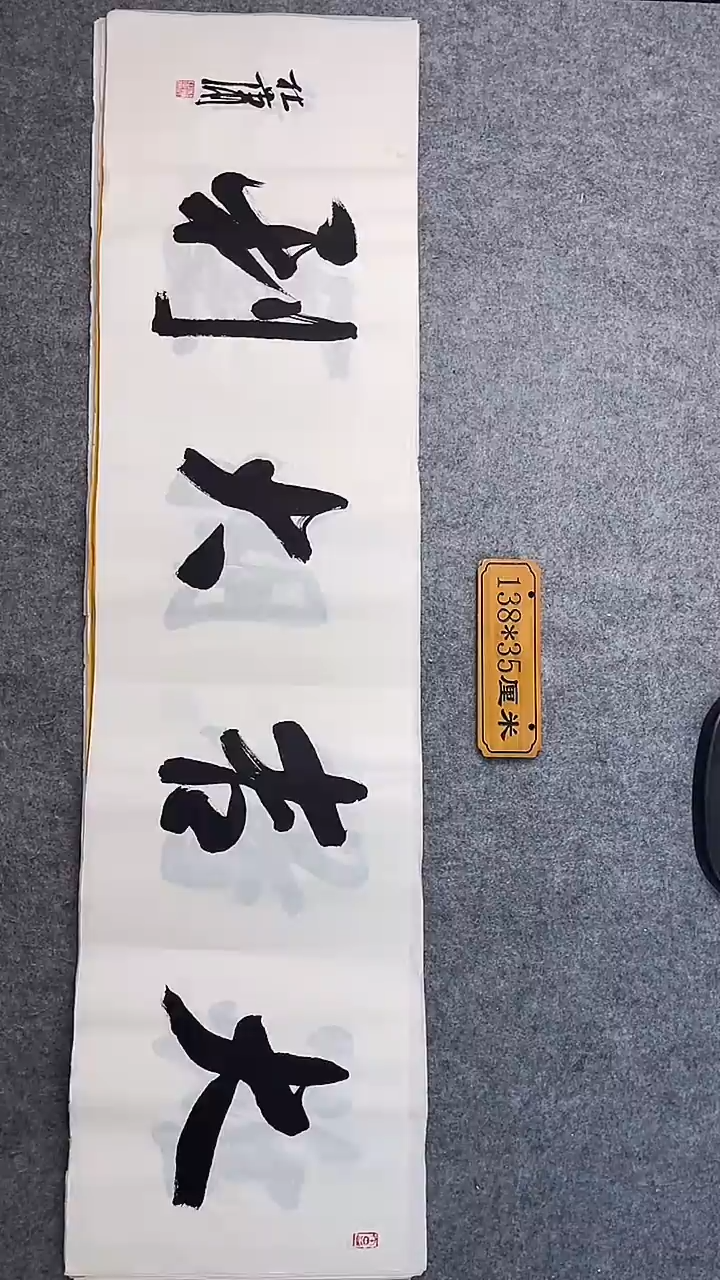 大吉大利
138*35厘米